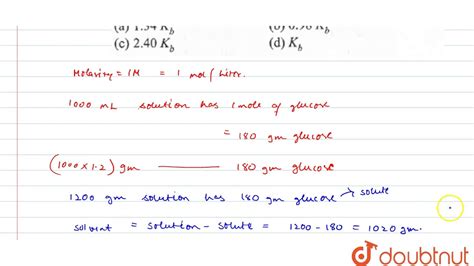 (a) 1.34 K_b (b) 0.98 K_b
(c) 2.40 K_b (d) K_b
Molarity = 1M = 1 mol / liter.
1000 mL solution has 1 mole of glucose
= 180 gm glucose
(1000 × 1.2) gm —— 180 gm glucose
1200 gm solution has 180 gm glucose → solute
solvent = solution - solute = 1200 - 180 = 1020 gm.
doubtnut